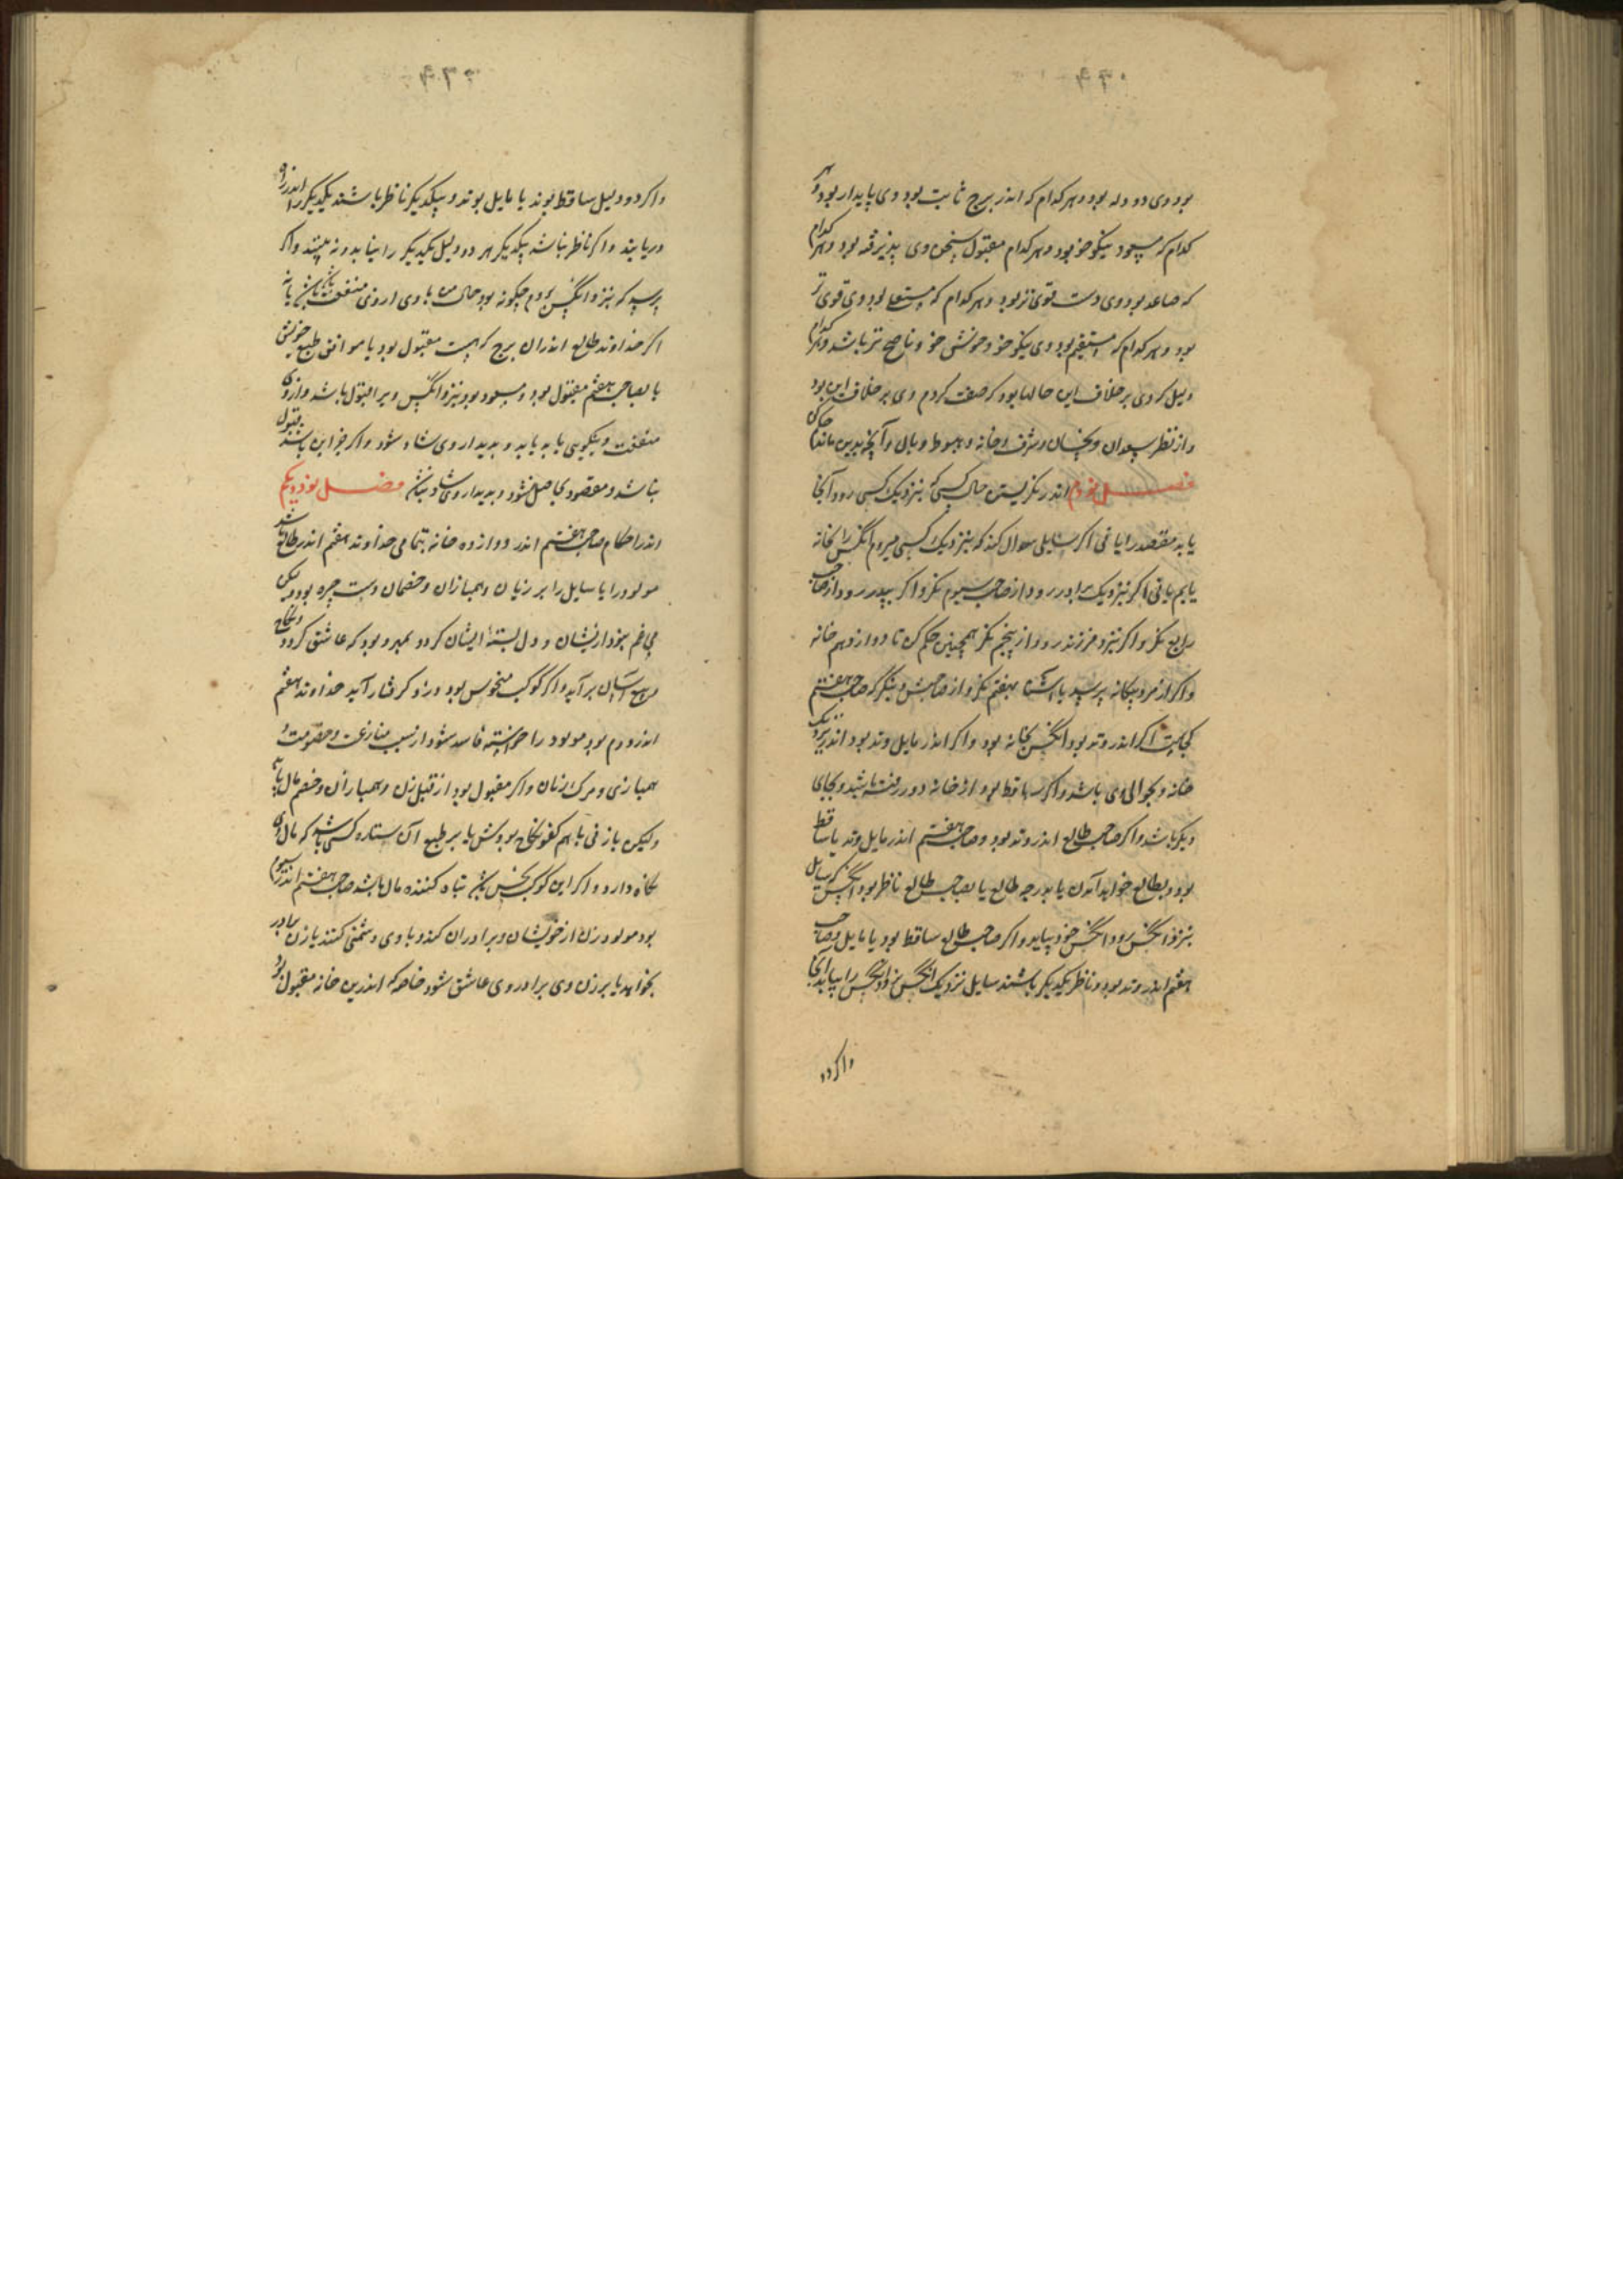 بود وی دو دله بود و هر کدام که اندر برج ثابت بود وی پایدار بود و هر
کدام که مسعود نیکو خو بود و هر کدام مقبول سخن وی پذیرفته بود و هر کدام
که صاعد بود وی دست قوی تر بود و هر کدام که مستعلی بود وی قوی تر
بود و هر کدام که مستقیم بود وی نیکو خو و خوشی خو و ناصح تر باشد و هر کدام
دلیل که وی بر خلاف این حالها بود که صفت کردم وی بر خلاف این بود
و از نظر سعدان و نحسان و شرف و خانه و هبوط و وبال و آنچ بدین ماند
فصل نودم اندر نگریستن حال کسی که بنزدیک کسی رود آنجا
یابد مقصد را یا نی اگر سایلی سوال کند که بنزدیک کسی میروم انکس را بخانه
یابم یا نی اگر بنزدیک برادر رود از صاحب سیوم نگر و اگر بپدر رود از صاحب
رابع نگر و اگر بنزد فرزند رود از پنجم نگر همچنین حکم کن تا دوازدهم خانه
و اگر از مرد بیگانه پرسید یا آشنا بهفتم نگر و از صاحبش و بنگر که صاحب هفتم
کجاست اگر اندر وتد بود انکس بخانه بود و اگر اندر مایل وتد بود اندر نزدیک
خانه و بحوالی وی باشد و اگر ساقط بود از خانه دور رفته باشد و بجای
دیگر باشد و اگر صاحب طالع اندر وتد بود و صاحب هفتم اندر مایل وتد یا ساقط
بود و بطالع خواهد آمدن یا بدرجه طالع یا بصاحب طالع ناظر بود انکس که سایل
بنزد انکس رود انکس خود بیاید و اگر صاحب طالع ساقط بود یا مایل و صاحب
هفتم اندر وتد بود و ناظر یکدیگر باشند سایل نزدیک انکس رود انکس را بیابد آنجا
و اگر دو
و اگر دو دلیل ساقط بوند یا مایل بوند و بیکدیگر ناظر باشند یکدیگر را اندر راه
دریابند و اگر ناظر نباشد بیکدیگر هر دو دلیل یکدیگر را نیابد و نه بینند و اگر
پرسید که بنزد انکس بروم چگونه بود حال من با وی از وی منفعت یابم یا نه
اگر خداوند طالع اندران برج که هست مقبول بود یا موافق طبع خویش
یا بصاحب هفتم مقبول بود و مسعود بود بنزد انکس ویرا قبول باشد و از وی
منفعت و نیکویی یابد و بدیدار وی شاد شود و اگر جز این باشد مقبول
نباشد و مقصود بحاصل نشود و بدیدار وی شاد نباشد فصل نود و یکم
اندر احکام صاحب هفتم اندر دوازده خانه بتمامی خداوند هفتم اندر طالع باشد
مولود را یا سایل را بر زنان و همبازان و خصمان دست چیره بود و لیکن
خود از ایشان و دل بسته ایشان گردد و بود که عاشق گردد و نکاح
آسان برآید و اگر کوکب منحوس بود و گرفتار آید خداوند هفتم
اندر دوم بود مولود را خواسته فاسد شود از سبب منازعت و خصومت
همبازی و مرگ زنان و اگر مقبول بود از قبل زن و همبازان و خصم مال یابد
ولیکن با زنی نکاح بودش یا بر طبع آن ستاره کسی باشد که مال وی
نگاه دارد و اگر این کوکب نحس باشد تباه کننده مال باشد صاحب هفتم اندر سیوم
بود مولود زن از خویشان و برادران کند و با وی دشمنی کنند یا زن برادر
بخواهد یا بر زن وی برادر وی عاشق شود خاصه که اندرین خانه مقبول بود